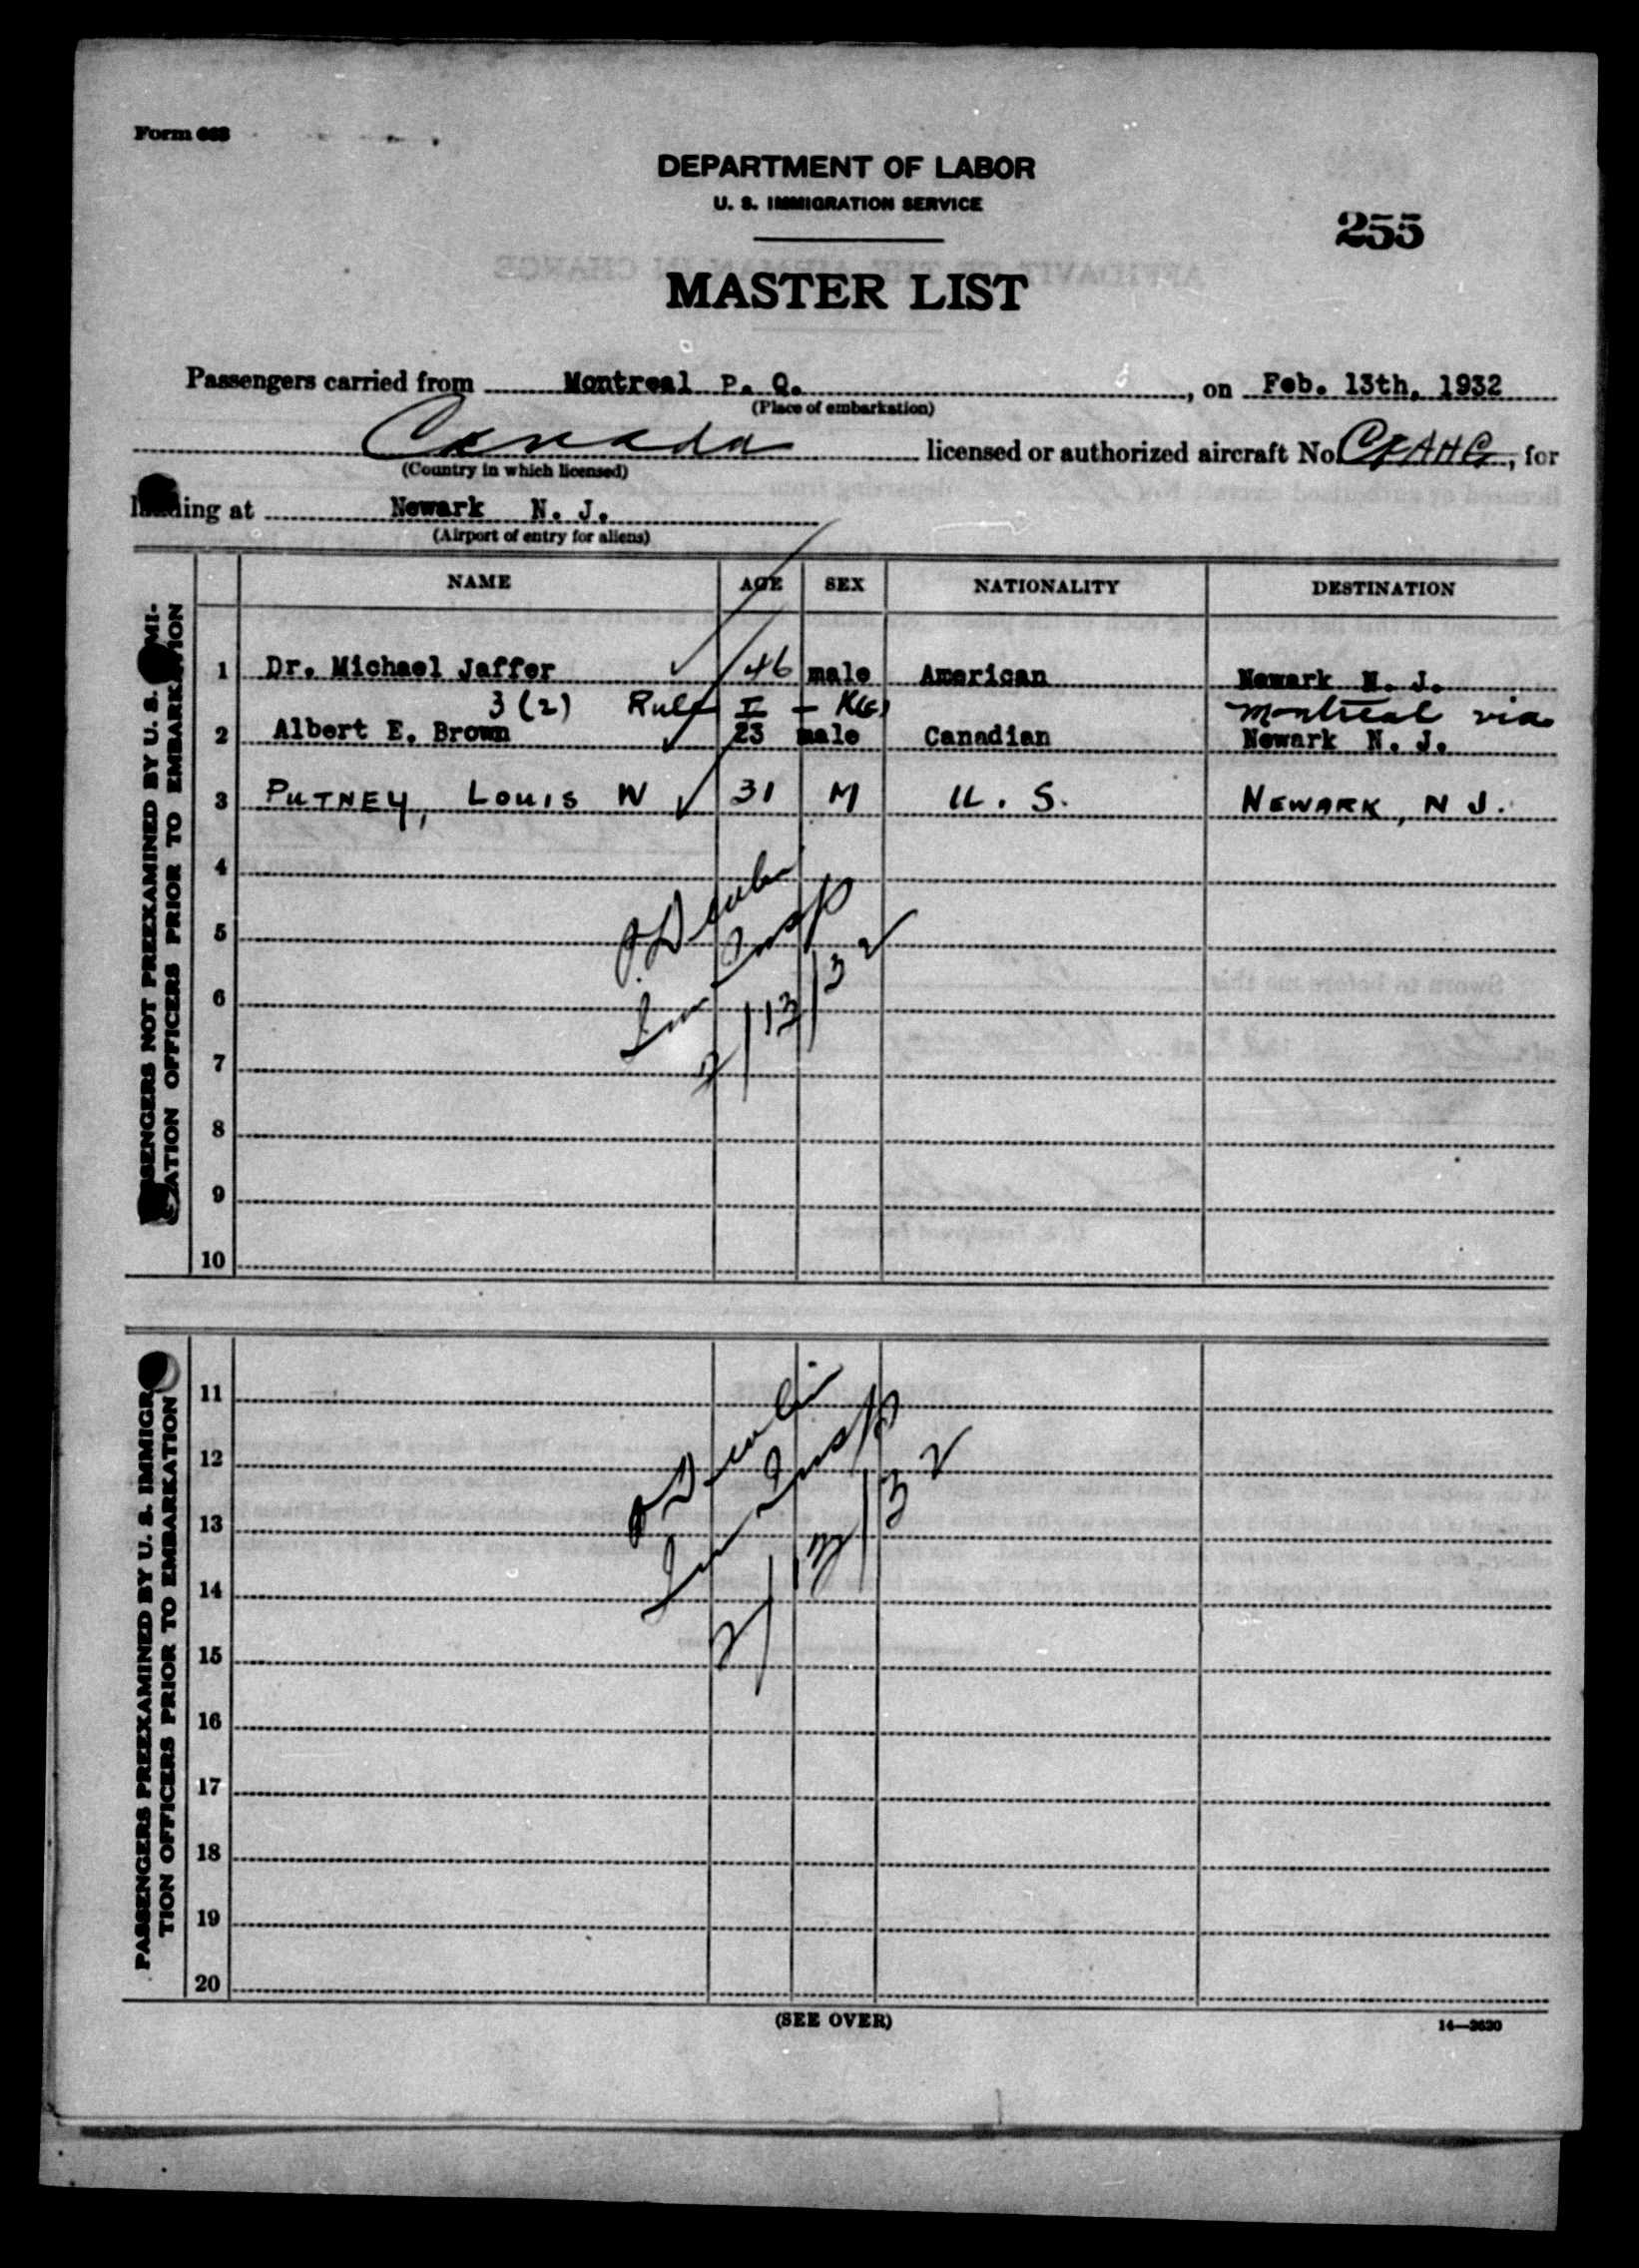 Form
DEPARTMENT OF LABOR
U. S. IMMIGRATION SERVICE
255
MASTER LIST
Passengers carried from Montreal P. Q. , on Feb. 13th, 1932
(Place of embarkation)
Canada licensed or authorized aircraft No. , for
(Country in which licensed)
landing at Newark N. J.
(Airport of entry for aliens)
NAME AGE SEX NATIONALITY DESTINATION
PASSENGERS NOT PREEXAMINED BY U. S. IMMI-
GRATION OFFICERS PRIOR TO EMBARKATION
1 Dr. Michael Jaffer 46 male American Newark N. J.
3 (2) Rule I - K(6) Montreal via
2 Albert E. Brown 23 male Canadian Newark N. J.
3 PUTNEY, LOUIS W 31 M U. S. NEWARK, N J.
4
5
6
7
8
9
10
Imm Insp
2/13/32
PASSENGERS PREEXAMINED BY U. S. IMMIGRA-
TION OFFICERS PRIOR TO EMBARKATION
11
12
13
14
15
16
17
18
19
20
Imm Insp
2/13/32
(SEE OVER)
14—2630